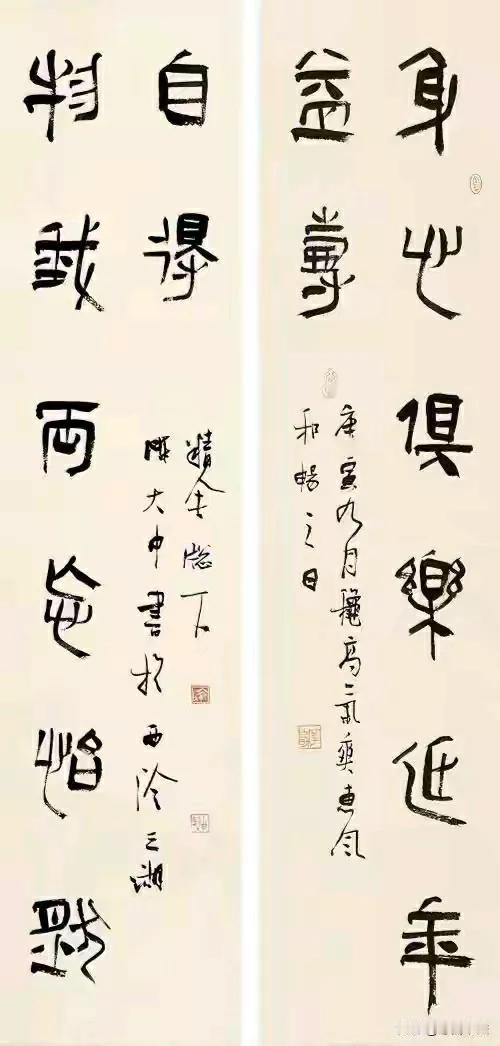 身心俱樂延年
益壽
庚寅九月龝高氣爽惠風
和暢之日
物我兩忘怡然
自得
陳大中書於西泠三湖
精舍牕下